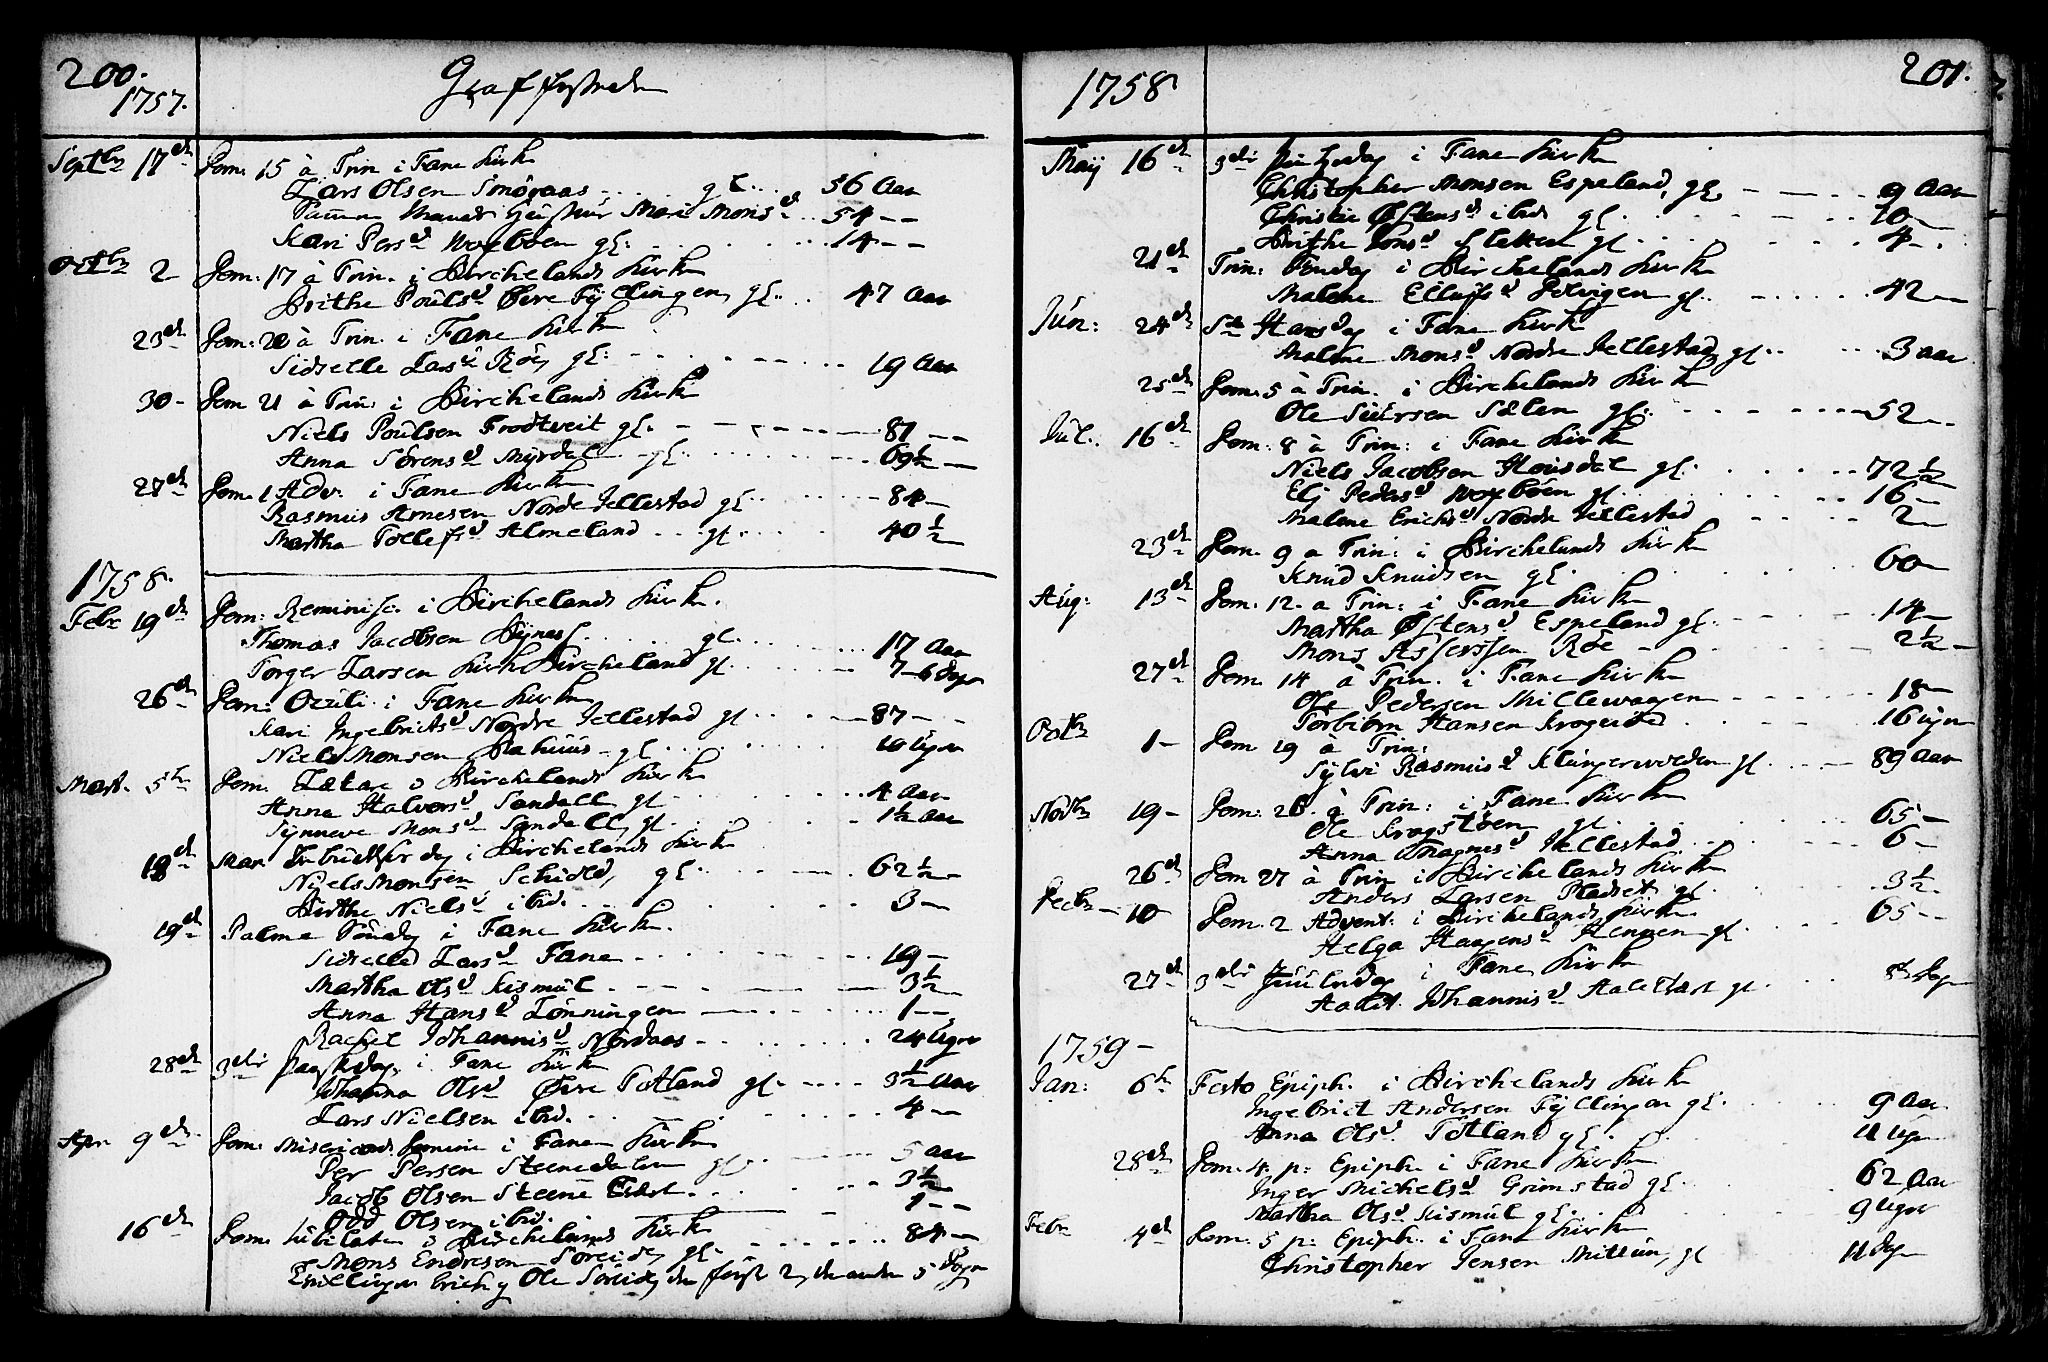 200.
1757.
Septbr 17de Dom. 15 à Trin i Fane Kirke
Lars Olsen Smøraas gl. 56 Aar
Mons d. 54 --
Kari Pers d. gl. 14 --
Octbr 2 Dom. 17 à Trin. i Birchelands Kirke
Brithe Pouls d. Øvre Fyllingen gl. 47 Aar
23de Dom. 20 à Trin. i Fane Kirke
Sidselle Lars d. Røe gl. 19 Aar
30 - Dom 21 à Trin: i Birchelands Kirke
Niels Poulsen Trodtveit gl. 81 --
Anna Sørens d. Myrdal gl. 69½ --
27de Dom. 1 Adv. i Fane Kirke
Rasmus Arnesen Nordre Jellestad gl. 84 -
Martha Tollefs d. Almeland gl. 40½
1758.
Febr 19de Dom: Reminisc. i Birchelands Kirke.
Thomas Jacobsen Bynes gl. 17 Aar
Torger Larsen Kirk Bircheland gl. 7 - 6 Dage
26de Dom: Oculi i Fane Kirke
Kari Ingebrichts d. Nordre Jellestad gl. 87 -
Niels Monsen Rahuus gl. 10 Uger
Mart. 5te Dom. Lætare i Birchelands Kirke
Anna Halvors d. Sandall gl. 4 Aar
Synneve Mons d. Sandall gl. 1½ Aar
18de Mar. dag i Birchelands Kirke
Niels Monsen Schiold, gl. 62½ -
Birthe Niels d. ibid. 3 -
19de Palme Søndag i Fane Kirke.
Sidselle Lars d. Fane 19 -
Martha Ols d. Kismul 3½
Anna Hans d. Lønningen 1 --
Rachel Johannis d. Nordaas 24 Uger
28de 3die Paaskedag i Fane Kirke
Johanna Ols d. Øvre Totland gl. 3½ Aar
Lars Nielsen ibid. 4 --
Apr 9de Dom. Misericord. Domini i Fane Kirke
Per Persen Steensdalen gl. 5 Aar
Jacob Olsen Steene 3½
Odd Olsen ibid. 1 --
16de Dom. Jubilate i Birchelands Kirke
Mons Endresen Søreide, gl. 84 -
Erich og Ole Søreide den første 2, den anden 5 Dage
1758
201.
Maij 16de 3die Pintzedag i Fane Kirke
Christopher Monsen Espeland, gl. 9 Aar
Christie Østens d. ibid gl. 10
Brithe Mons d. Sletten gl. 4 -
21de Trin: Søndag i Birchelands Kirke
Malene Ellufs d. Dolvigen gl. 42 --
Jun: 24de St. Hansdag i Fane Kirke
Malene Mons d. Nordre Jellestad gl. 3 aar
25de Dom. 5 à Trin. i Birchelands Kirke
Ole Siursen Sælen gl. 52 -
Jul. 16de Dom: 8 à Trin: i Fane Kirke
Niels Jacobsen Housdal gl. 72½
Eli Peders d. gl. 16 -
Malene Erichs d. Nordre Jellestad 2 -
23de Dom. 9 a Trin: i Birchelands Kirke
Knud Knudsen gl. 60 -
Aug: 13de Dom. 12. a Trin: i Fane Kirke
Martha Østens d. Espeland gl. 14 -
Mons Assersen Røe 2½ -
27de Dom. 14 à Trin. i Fane Kirke
Ole Pedersen Millewaagen 18 -
Torbiørn Hansen 16 Uger
Octbr 1 - Dom 19 à Trin:
Sylvi Rasmus d. gl. 89 Aar
Novbr 19 - Dom. 26. à Trin: i Fane Kirke
Ole gl. 65 -
Anna Magnes d. Jellestad 6 -
26de Dom 27 à Trin i Birchelands Kirke
Anders Larsen gl. 3½
Decbr 10 Dom. 2 Advent: i Birchelands Kirke
Helga Haagens d. gl. 65 --
27de 3die Juuledag i Fane Kirke
Johannis d. gl. 8 Dage
1759 -
Jan: 6te Festo Epiph. i Birchelands Kirke
Ingebrict Andersen Fyllingen gl. 9 Aar
Anna Ols d. Totland gl. 11 Uger
28de Dom. 4. p: Epiph. i Fane Kirke
Inger Michels d. Grimstad gl. 62 Aar
Martha Ols d. Kismul gl. 9 Uger
Febr 4de Dom. 5 p: Epiph. i Fane Kirke
Christopher Jensen Mittun, gl 11 Dage